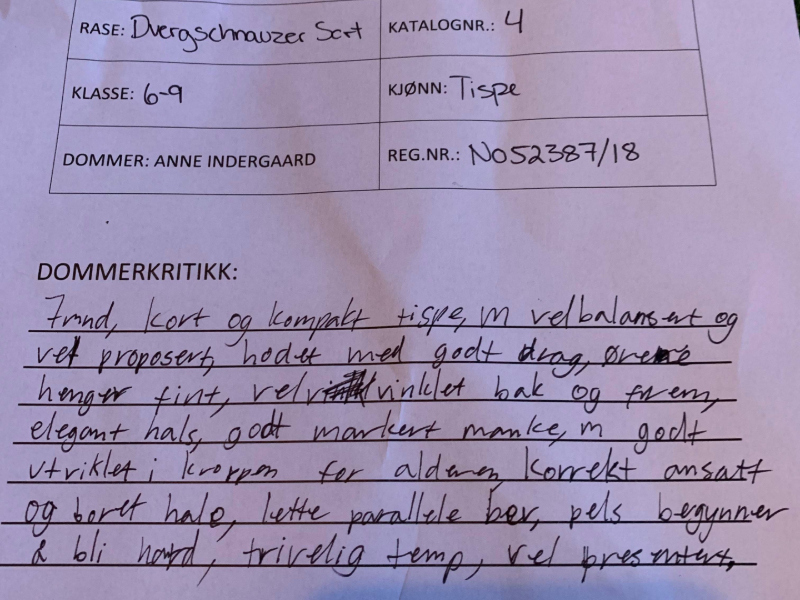 RASE: Dvergschnauzer Sort KATALOGNR.: 4
KLASSE: 6-9 KJØNN: Tispe
DOMMER: ANNE INDERGAARD REG.NR.: NO52387/18
DOMMERKRITIKK:
7mnd, kort og kompakt tispe, m velbalansert og
vel proposert, hodet med godt drag, ørene
henger fint, velvinklet bak og frem,
elegant hals, godt markert manke, m godt
utviklet i kroppen for alderen, korrekt ansatt
og boret hale, lette parallele bev, pels begynner
å bli hard, trivelig temp, vel presentert.